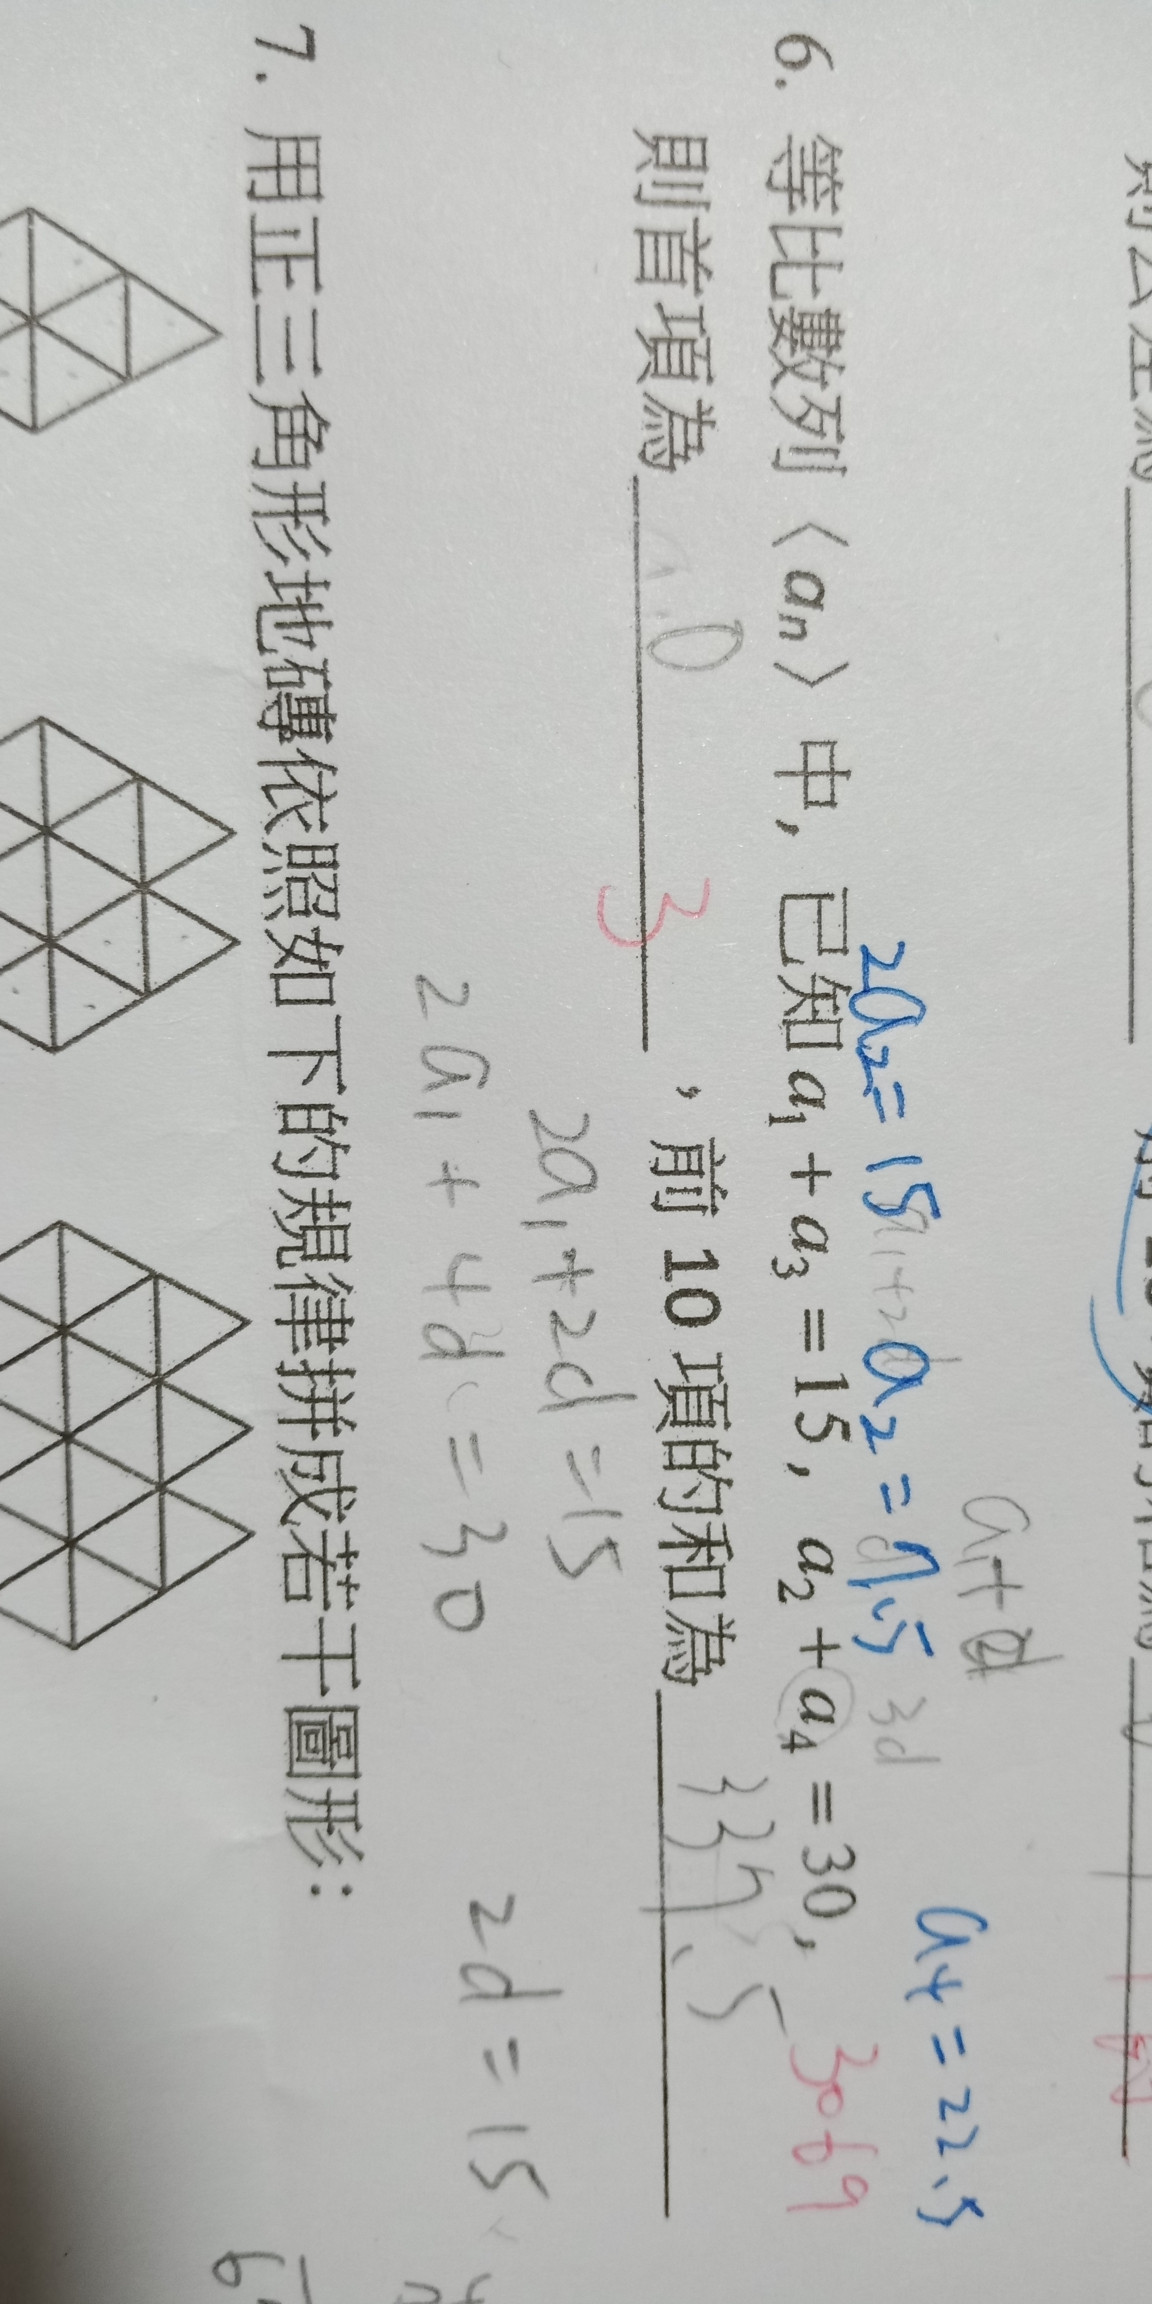 2a₂=15 a₂=7.5 a₄=22.5
a₁+d
3d
6. 等比數列〈aₙ〉中, 已知 a₁ + a₃ = 15, a₂ + a₄ = 30,
3069
則首項為 0 3 , 前 10 項的和為 337.5
2a₁+2d=15
2a₁+4d=30
2d=15
7. 用正三角形地磚依照如下的規律拼成若干圖形: